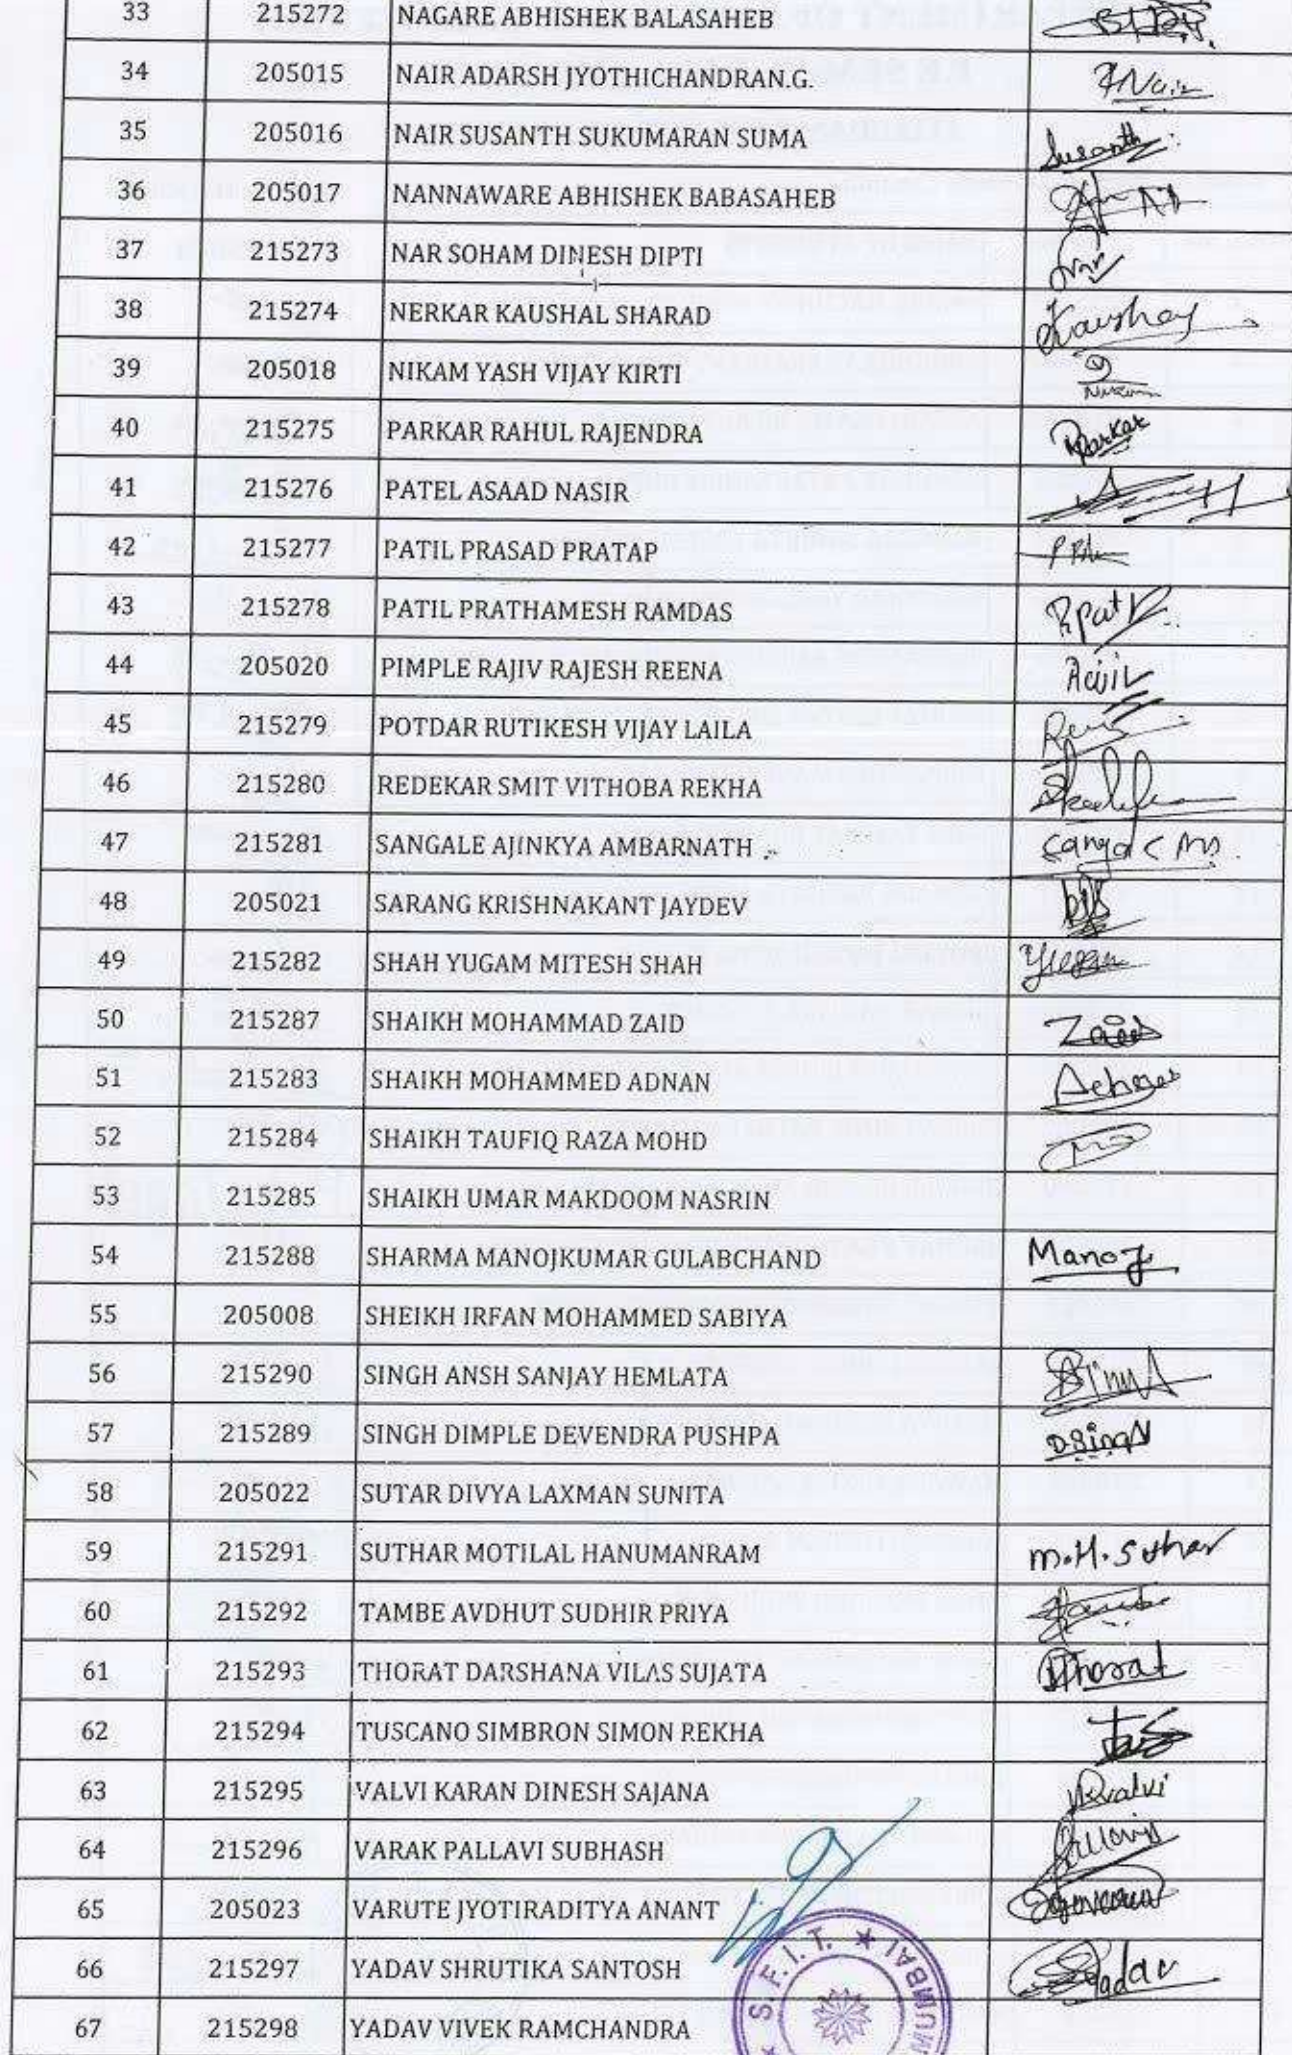 33 215272 NAGARE ABHISHEK BALASAHEB
34 205015 NAIR ADARSH JYOTHICHANDRAN.G. Nair
35 205016 NAIR SUSANTH SUKUMARAN SUMA Susanth
36 205017 NANNAWARE ABHISHEK BABASAHEB
37 215273 NAR SOHAM DINESH DIPTI
38 215274 NERKAR KAUSHAL SHARAD Kaushal
39 205018 NIKAM YASH VIJAY KIRTI
40 215275 PARKAR RAHUL RAJENDRA Parkar
41 215276 PATEL ASAAD NASIR
42 215277 PATIL PRASAD PRATAP
43 215278 PATIL PRATHAMESH RAMDAS
44 205020 PIMPLE RAJIV RAJESH REENA Rajiv
45 215279 POTDAR RUTIKESH VIJAY LAILA
46 215280 REDEKAR SMIT VITHOBA REKHA
47 215281 SANGALE AJINKYA AMBARNATH
48 205021 SARANG KRISHNAKANT JAYDEV
49 215282 SHAH YUGAM MITESH SHAH
50 215287 SHAIKH MOHAMMAD ZAID Zaid
51 215283 SHAIKH MOHAMMED ADNAN
52 215284 SHAIKH TAUFIQ RAZA MOHD
53 215285 SHAIKH UMAR MAKDOOM NASRIN
54 215288 SHARMA MANOJKUMAR GULABCHAND Manoj
55 205008 SHEIKH IRFAN MOHAMMED SABIYA
56 215290 SINGH ANSH SANJAY HEMLATA
57 215289 SINGH DIMPLE DEVENDRA PUSHPA DSingh
58 205022 SUTAR DIVYA LAXMAN SUNITA
59 215291 SUTHAR MOTILAL HANUMANRAM M.H.Suthar
60 215292 TAMBE AVDHUT SUDHIR PRIYA
61 215293 THORAT DARSHANA VILAS SUJATA Dthorat
62 215294 TUSCANO SIMBRON SIMON REKHA
63 215295 VALVI KARAN DINESH SAJANA
64 215296 VARAK PALLAVI SUBHASH
65 205023 VARUTE JYOTIRADITYA ANANT
66 215297 YADAV SHRUTIKA SANTOSH
67 215298 YADAV VIVEK RAMCHANDRA
★ S.F.I.T. ★ MUMBAI